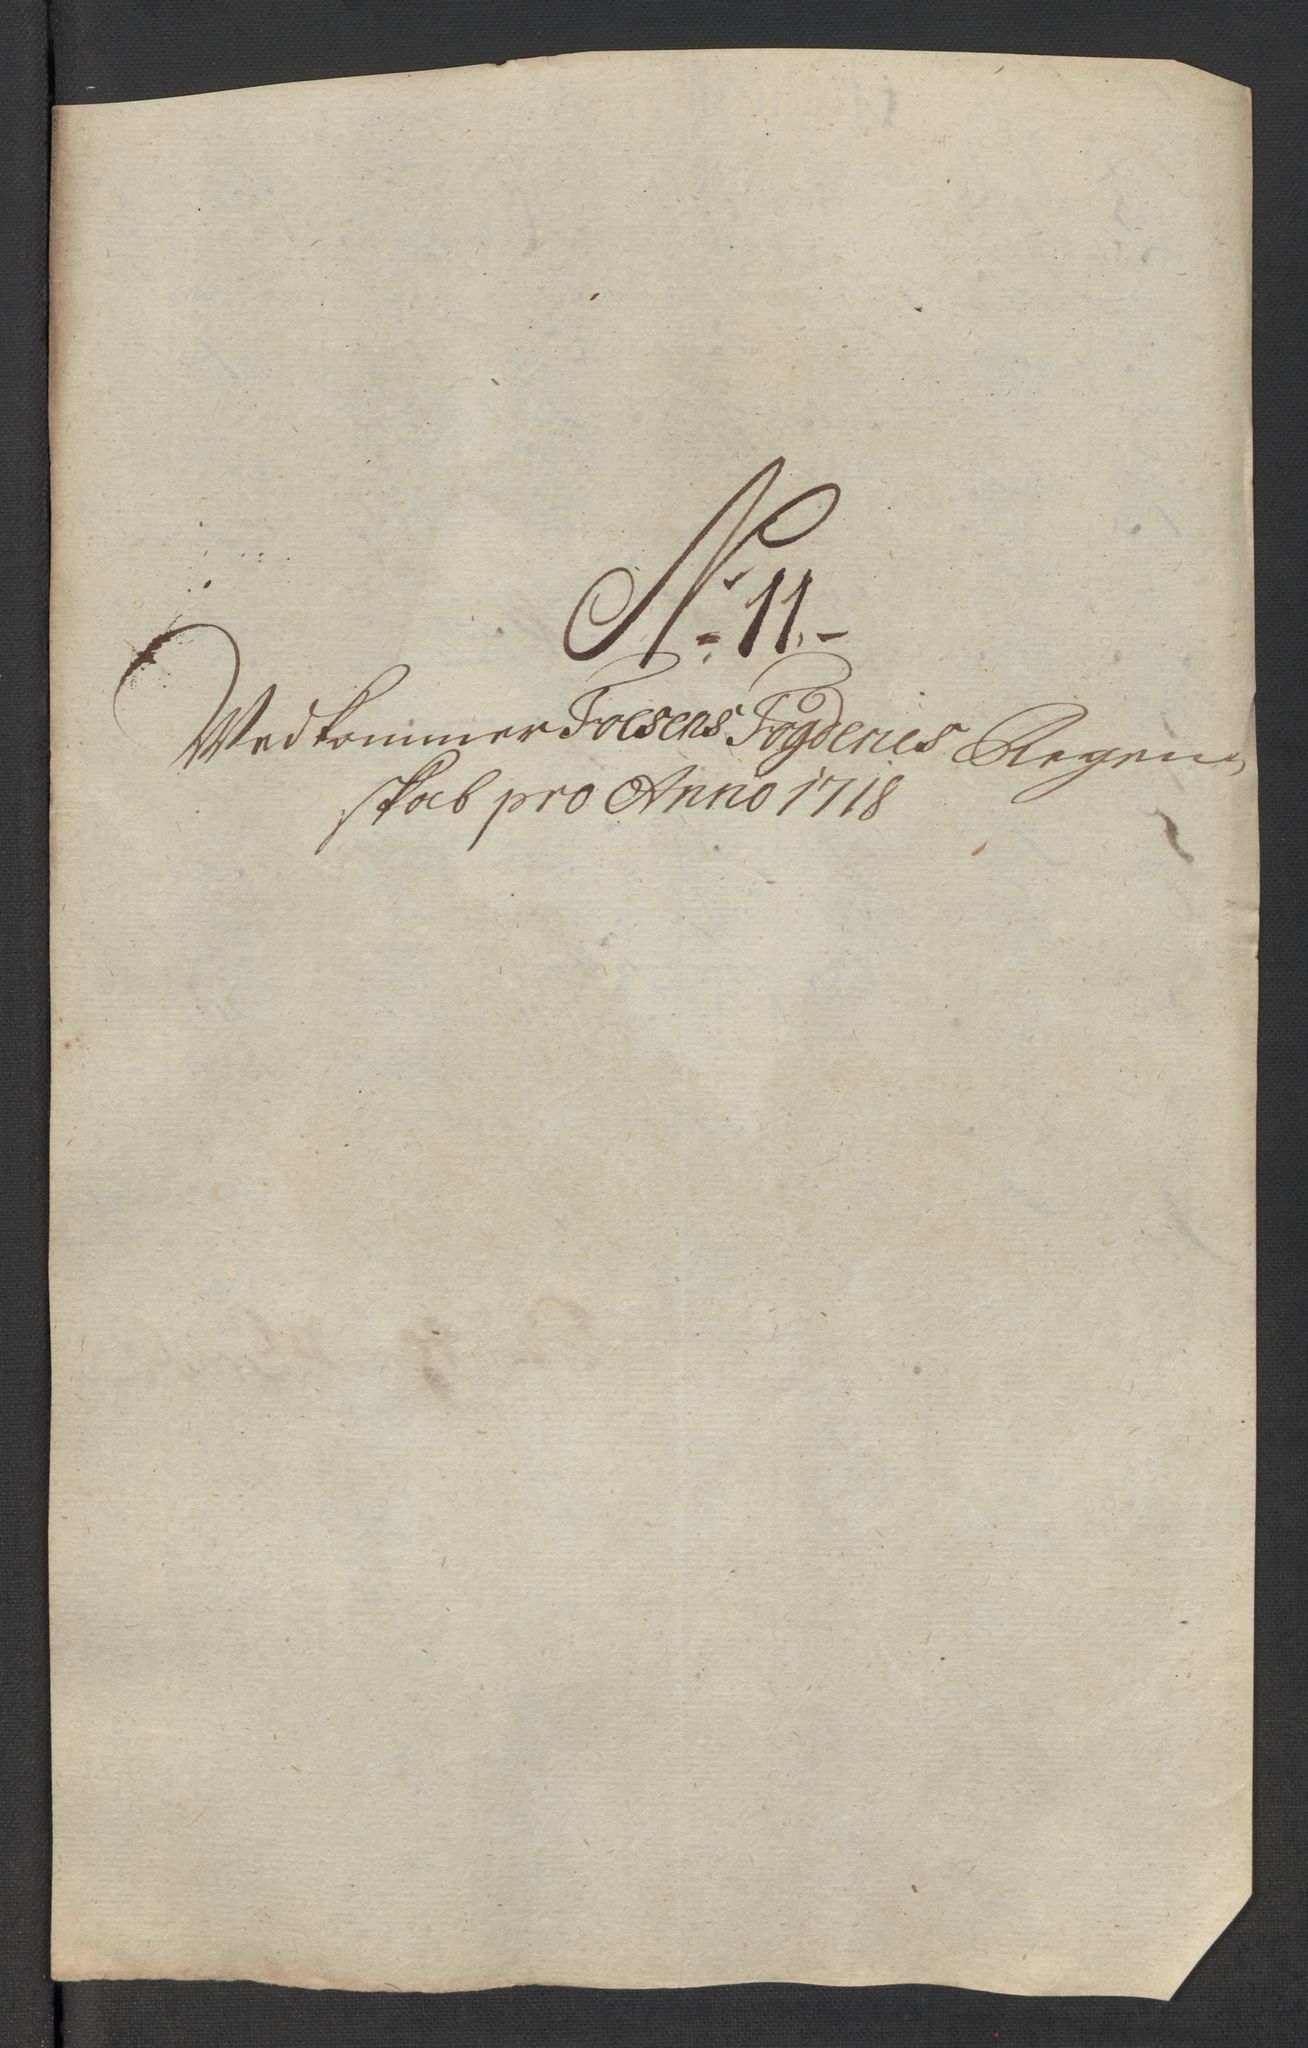 No: 11.-
Vedkommer Foesens Fogderies Regen-
skab pro Anno 1718